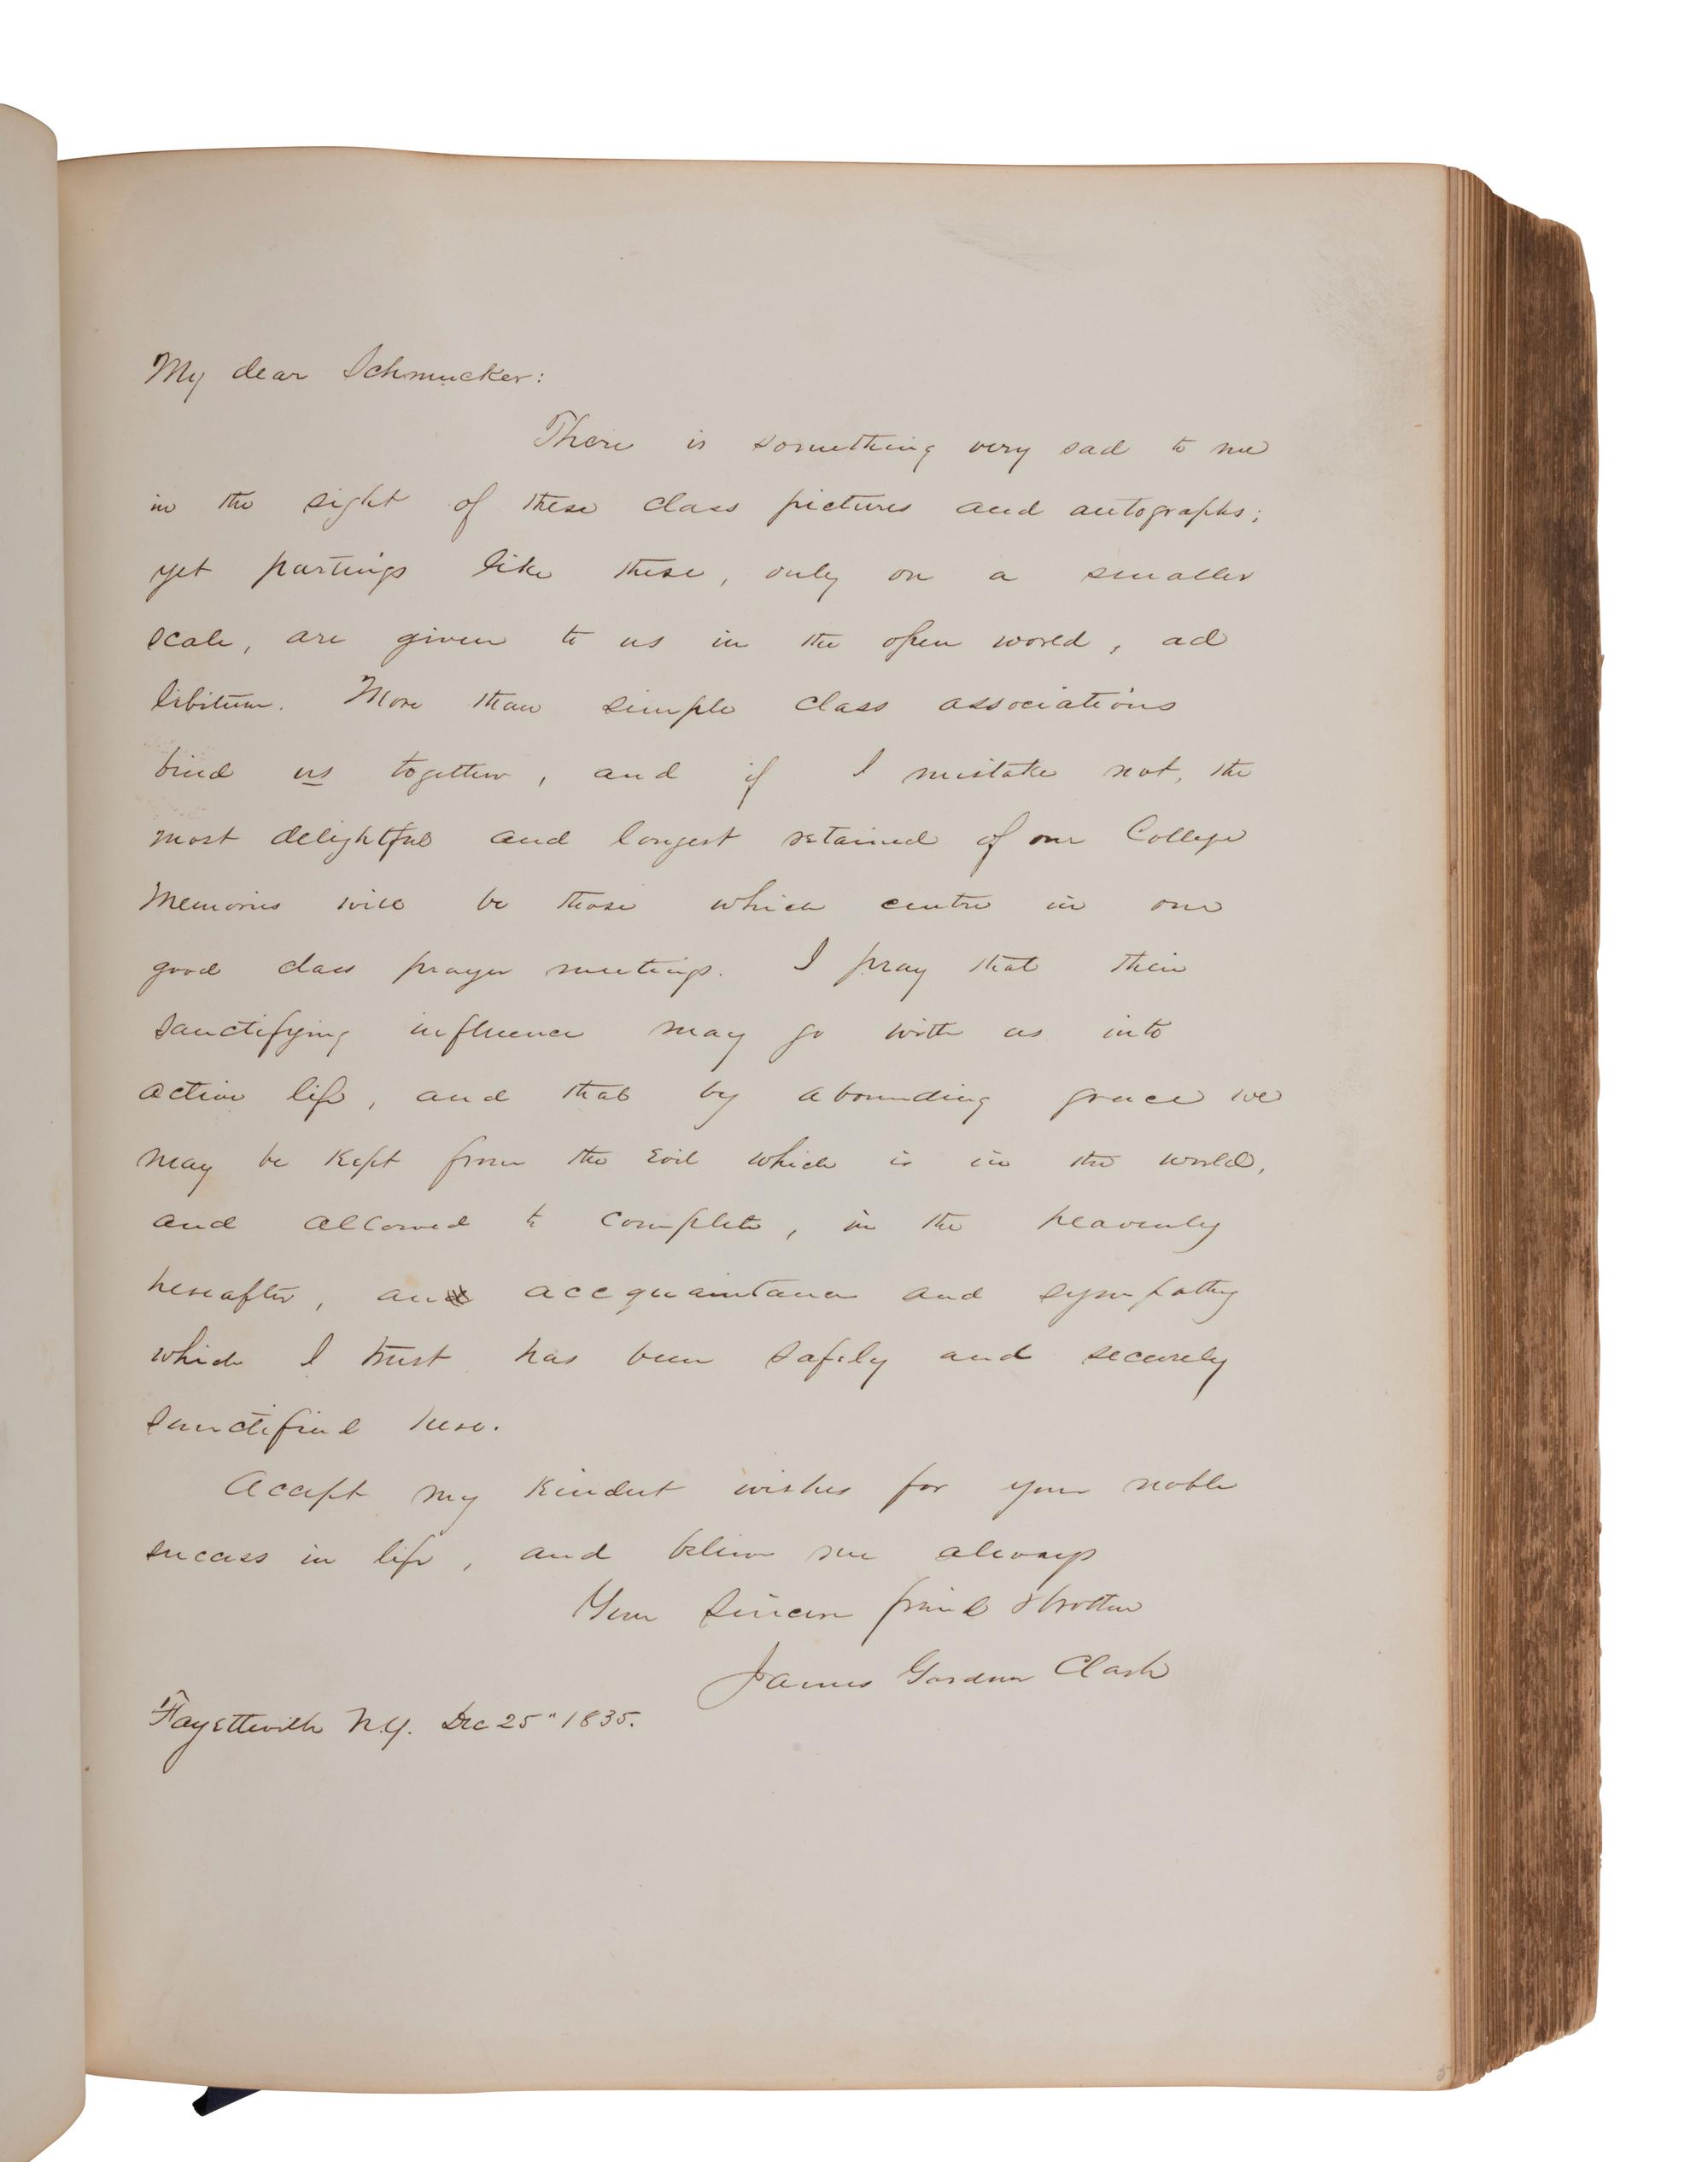 My dear Schmucker:
There is something very sad to me
in the sight of these class pictures and autographs;
yet partings like these, only on a smaller
scale, are given to us in the open world, ad
libitum. More than simple class associations
bind us together, and if I mistake not, the
most delightful and longest retained of our College
Memories will be those which centre in our
good class prayer meetings. I pray that their
sanctifying influence may go with us into
active life, and that by abounding grace we
may be kept from the evil which is in the world,
and allowed to complete, in the heavenly
hereafter, an accquaintance and sympathy
which I trust has been safely and securely
sanctified here.
Accept my kindest wishes for your noble
success in life, and believe me always
Your sincere friend & brother
James Gardner Clark
Fayetteville N.Y. Dec 25" 1835.